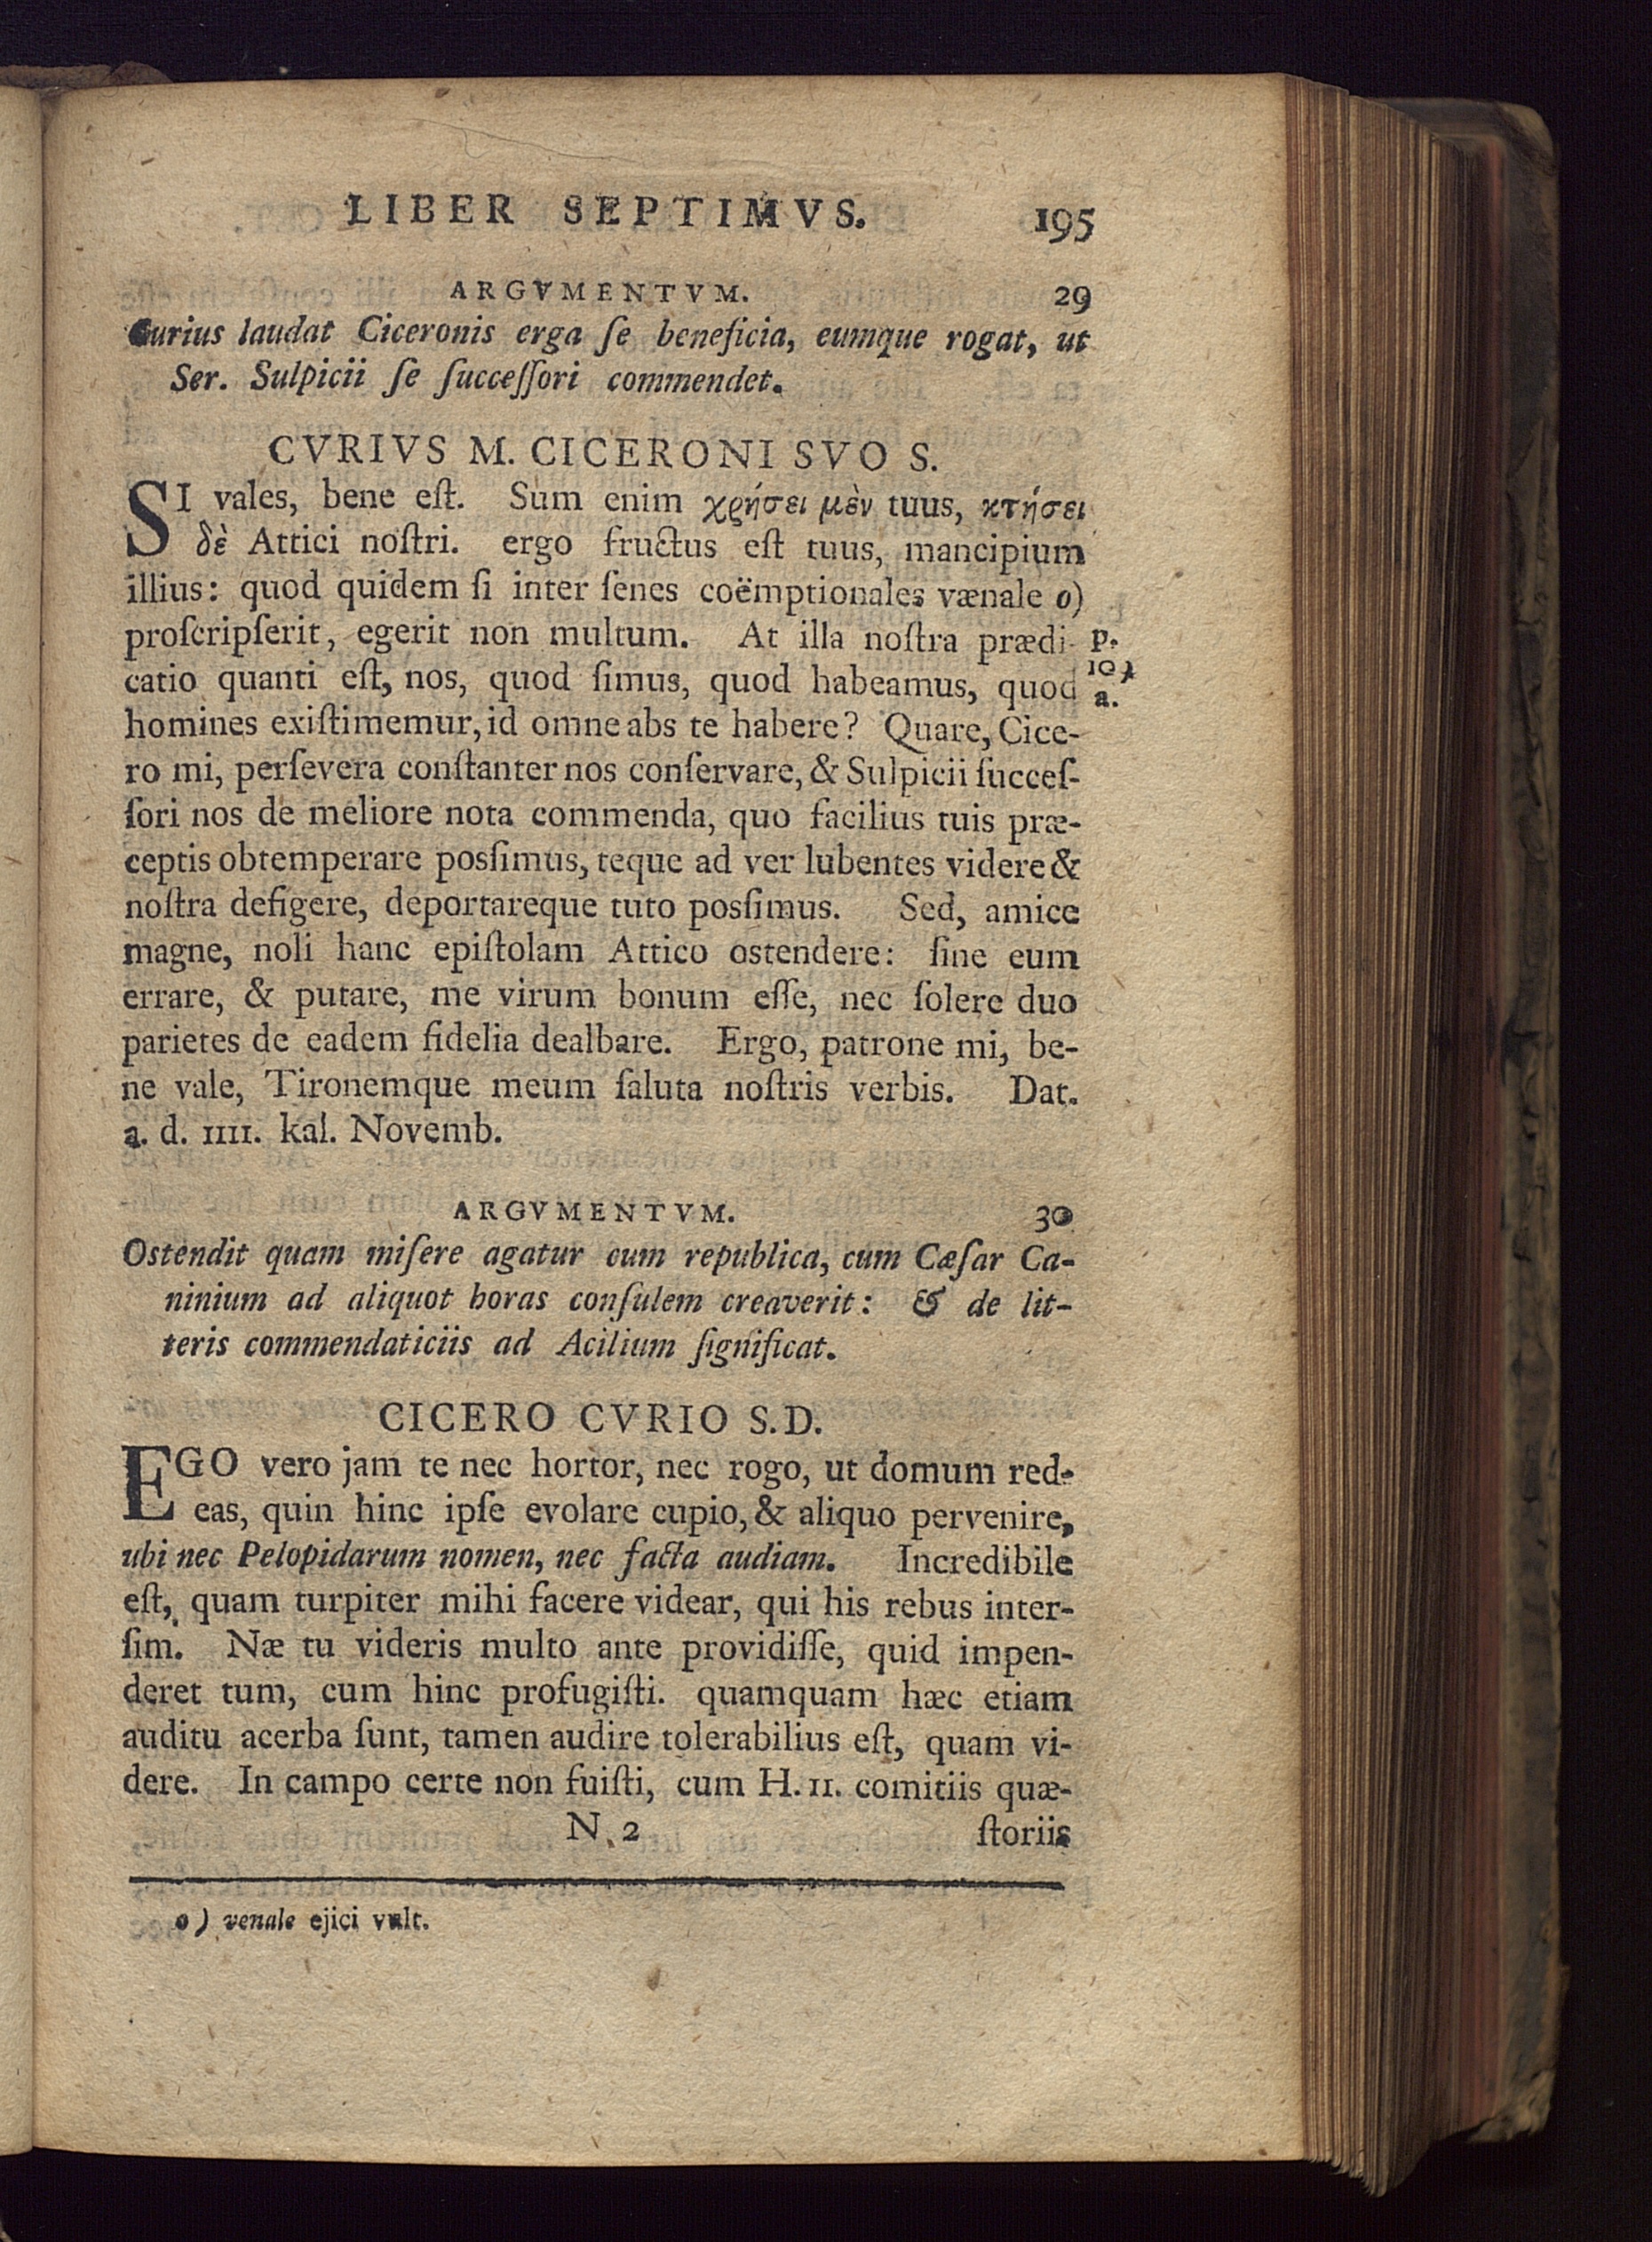 LIBER SEPTIMVS. 195
ARGVMENTVM. 29
Curius laudat Ciceronis erga ſe beneficia, eumque rogat, ut
Ser. Sulpicii ſe ſucceſſori commendet.
CVRIVS M. CICERONI SVO S.
SI vales, bene eſt. Sum enim χρήσει μὲν tuus, κτήσει
δὲ Attici noſtri. ergo fructus eſt tuus, mancipium
illius: quod quidem ſi inter ſenes coëmptionales vænale o)
proſcripſerit, egerit non multum. At illa noſtra prædi- p.
catio quanti eſt, nos, quod ſimus, quod habeamus, quod a.
homines exiſtimemur, id omne abs te habere? Quare, Cice-
ro mi, perſevera conſtanter nos conſervare, & Sulpicii ſucceſ-
ſori nos de meliore nota commenda, quo facilius tuis præ-
ceptis obtemperare posſimus, teque ad ver lubentes videre &
noſtra defigere, deportareque tuto posſimus. Sed, amice
magne, noli hanc epiſtolam Attico ostendere: ſine eum
errare, & putare, me virum bonum eſſe, nec ſolere duo
parietes de eadem fidelia dealbare. Ergo, patrone mi, be-
ne vale, Tironemque meum ſaluta noſtris verbis. Dat.
a. d. IIII. kal. Novemb.
ARGVMENTVM. 30
Ostendit quam miſere agatur cum republica, cum Cæſar Ca-
ninium ad aliquot horas conſulem creaverit: & de lit-
teris commendaticiis ad Acilium ſignificat.
CICERO CVRIO S.D.
EGO vero jam te nec hortor, nec rogo, ut domum red-
eas, quin hinc ipſe evolare cupio, & aliquo pervenire,
ubi nec Pelopidarum nomen, nec facta audiam. Incredibile
eſt, quam turpiter mihi facere videar, qui his rebus inter-
ſim. Næ tu videris multo ante providiſſe, quid impen-
deret tum, cum hinc profugiſti. quamquam hæc etiam
auditu acerba ſunt, tamen audire tolerabilius eſt, quam vi-
dere. In campo certe non fuiſti, cum H. II. comitiis quæ-
N 2 ſtoriis
o) venale ejici vult.